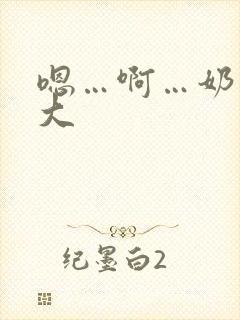 嗯…啊…奶
大
纪墨白2